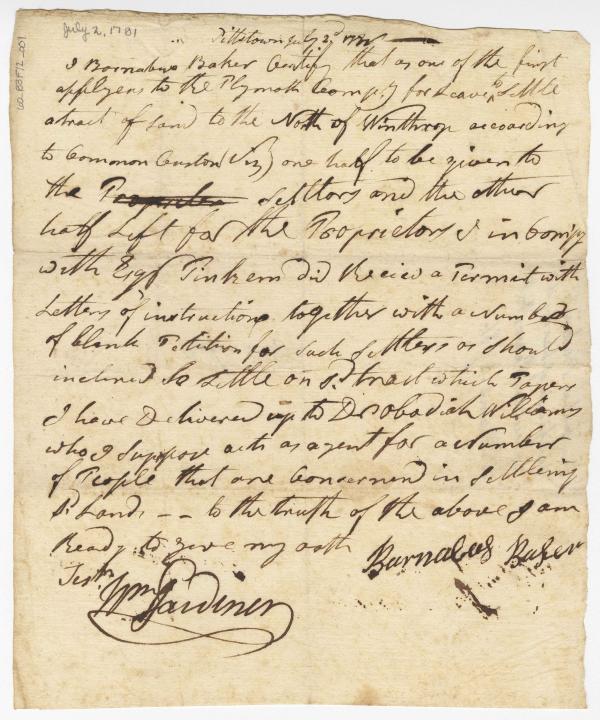 July 2, 1781
Pittstown July 2d
I Barnabas Baker Certify that as one of the first
applyers to the Plymoth Compy for Leave to Settle
a tract of Land to the North of Winthrop according
to Common Custom (Viz) one half to be given to
the Proprieters Settlors and the other
half Left for the Proprietors I in Compy
with Esqr Pinkem did Receive a Permit with
Letters of instructions together with a Number
of blank Petition for Such Settlers as Should
inclined to Settle on sd tract which Papers
I have Delivered up to Dr Obadiah Williams
who I Suppose acts as agent for a Number
of People that are Concerned in Settleing
sd Lands -- to the truth of the above I am
Ready to give my oath
Barnabas Baker
Test
Wm Gardiner